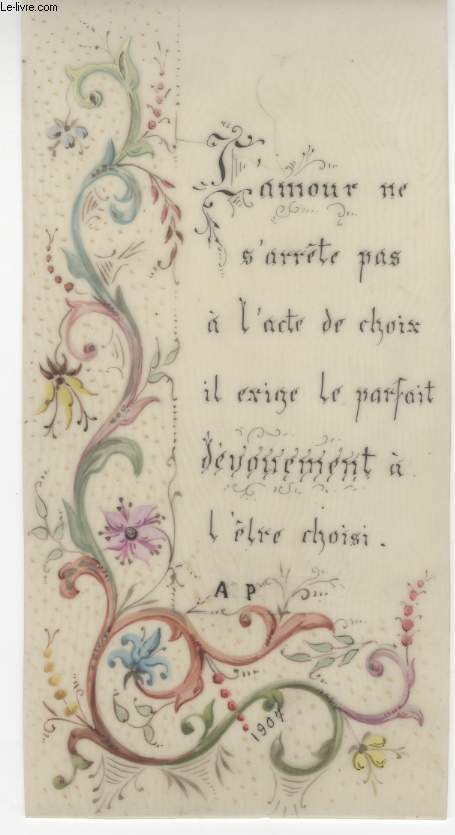 Le-livre.com
L'amour ne
s'arrête pas
à l'acte de choix
il exige le parfait
dévouement à
l'être choisi.
A P
1907